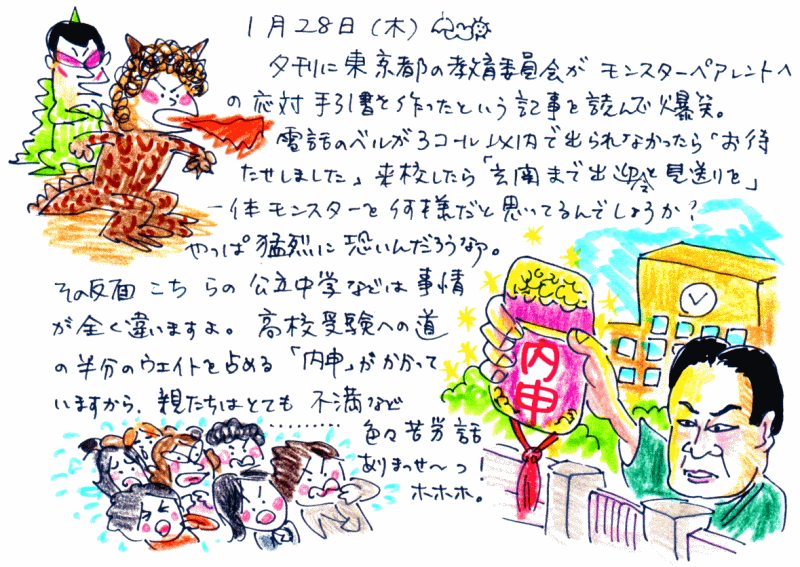 1月28日(木)
夕刊に東京都の教育委員会がモンスターペアレントへ
の応対手引書を作ったという記事を読んで爆笑。
電話のベルが3コール以内で出られなかったら「お待
たせしました」来校したら「玄関まで出迎えと見送りを」
一体モンスターを何様だと思ってるんでしょうか?
やっぱ猛烈に恐いんだろうなァ。
その反面こちらの公立中学などは事情
が全く違いますよ。高校受験への道
の半分のウエイトを占める「内申」がかかって
いますから、親たちはとても不満など
………色々苦労話
ありまっせ〜っ!
ホホホ。
内申